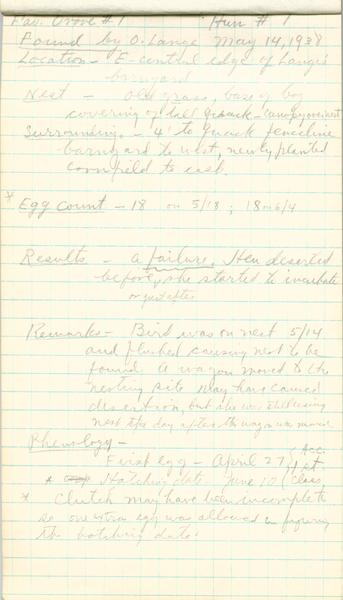 Fas. Grove # 1 Hun # 1
Found by O. Lange May 14, 1938
Location - E-central edge of Lange's
barnyard
Nest - Old grass, base of
covering of tall quack - canopy over nest
Surroundings - 4' to quack fenceline
barnyard to west, newly planted
cornfield to east.
* Egg count - 18 on 5/18; 18 on 6/4
Results - a failure, Hen deserted
before, she started to incubate
or just after
Remarks - Bird was on nest 5/14
and flushed causing nest to be
found. A wagon moved to the
nesting site may have caused
desertion, but she was still using
nest the day after the wagon was moved
Phenology -
First egg - April 27, Acc.
* Hatching date June 10 1st Class,
* Clutch may have been incomplete
so one extra egg was allowed in figuring
the hatching date.